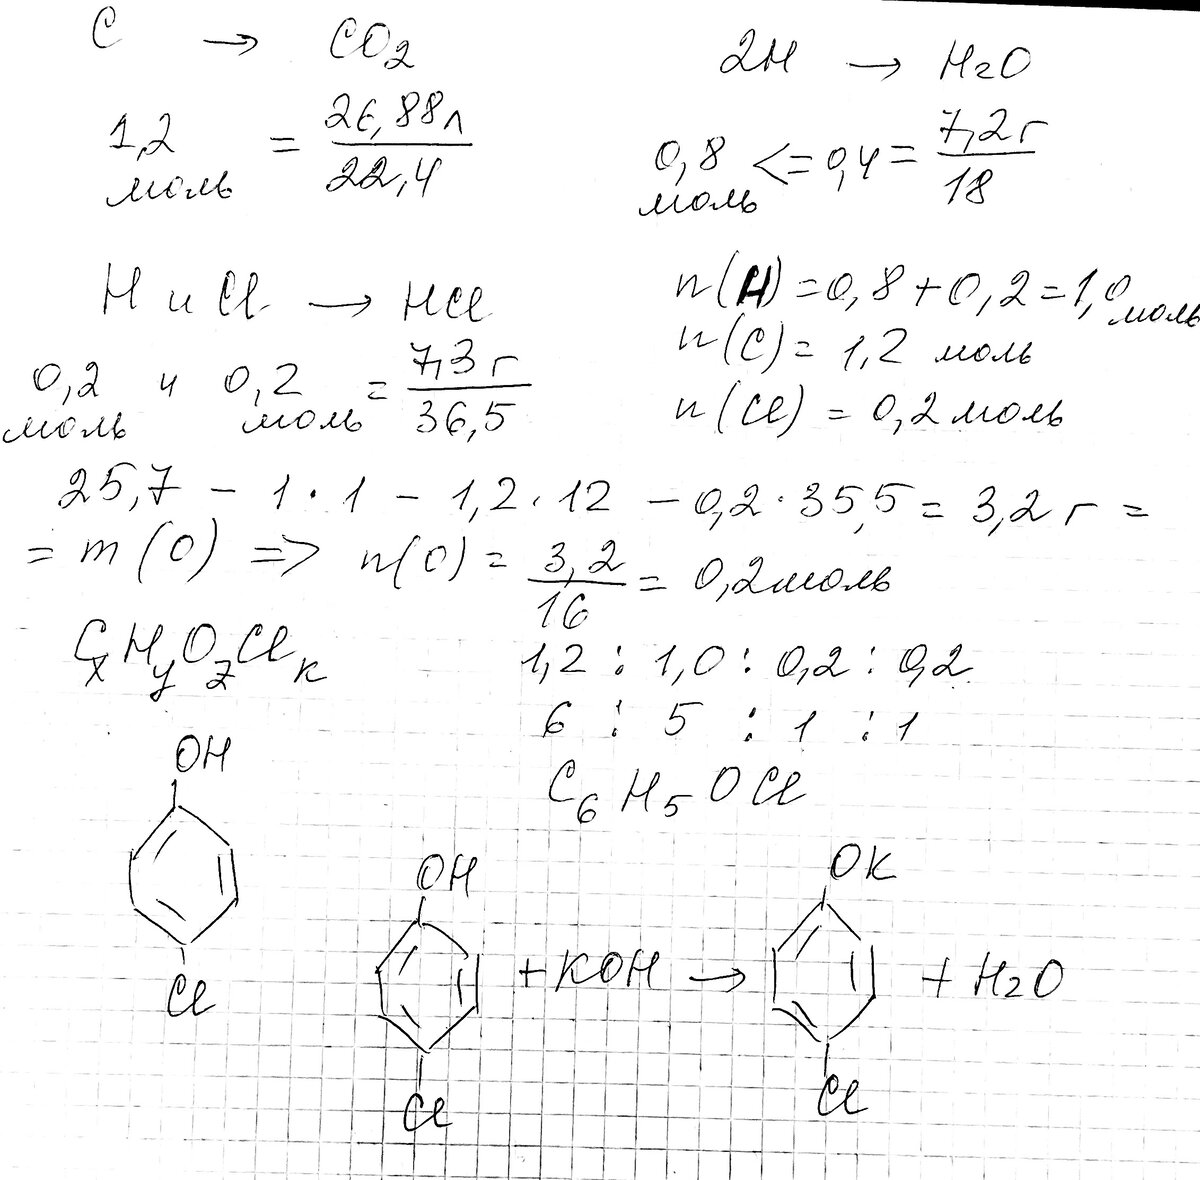 C → CO₂
1,2 моль = 26,88л / 22,4
2H → H₂O
0,8 моль <= 0,4 = 7,2г / 18
H и Cl → HCl
0,2 моль и 0,2 моль = 7,3г / 36,5
n(H) = 0,8 + 0,2 = 1,0 моль
n(C) = 1,2 моль
n(Cl) = 0,2 моль
25,7 - 1·1 - 1,2·12 - 0,2·35,5 = 3,2г =
= m(O) => n(O) = 3,2 / 16 = 0,2 моль
CxHyOzClk 1,2 : 1,0 : 0,2 : 0,2
6 : 5 : 1 : 1
C₆H₅OCl
OH
Cl
OH
Cl
+ KOH →
OK
Cl
+ H₂O